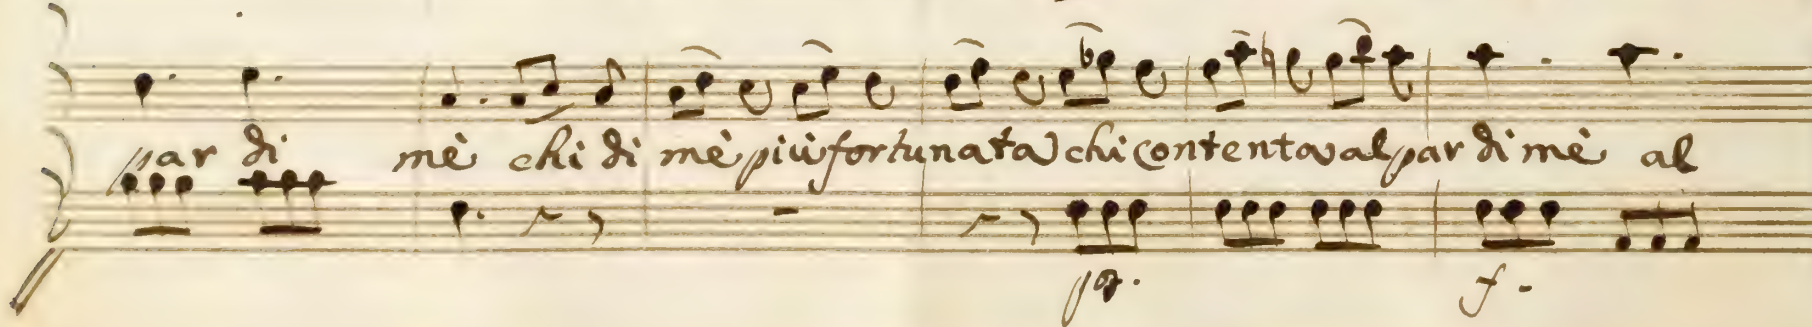 par di mè chi di mè più fortunata chi contenta al par di mè al
po. f.